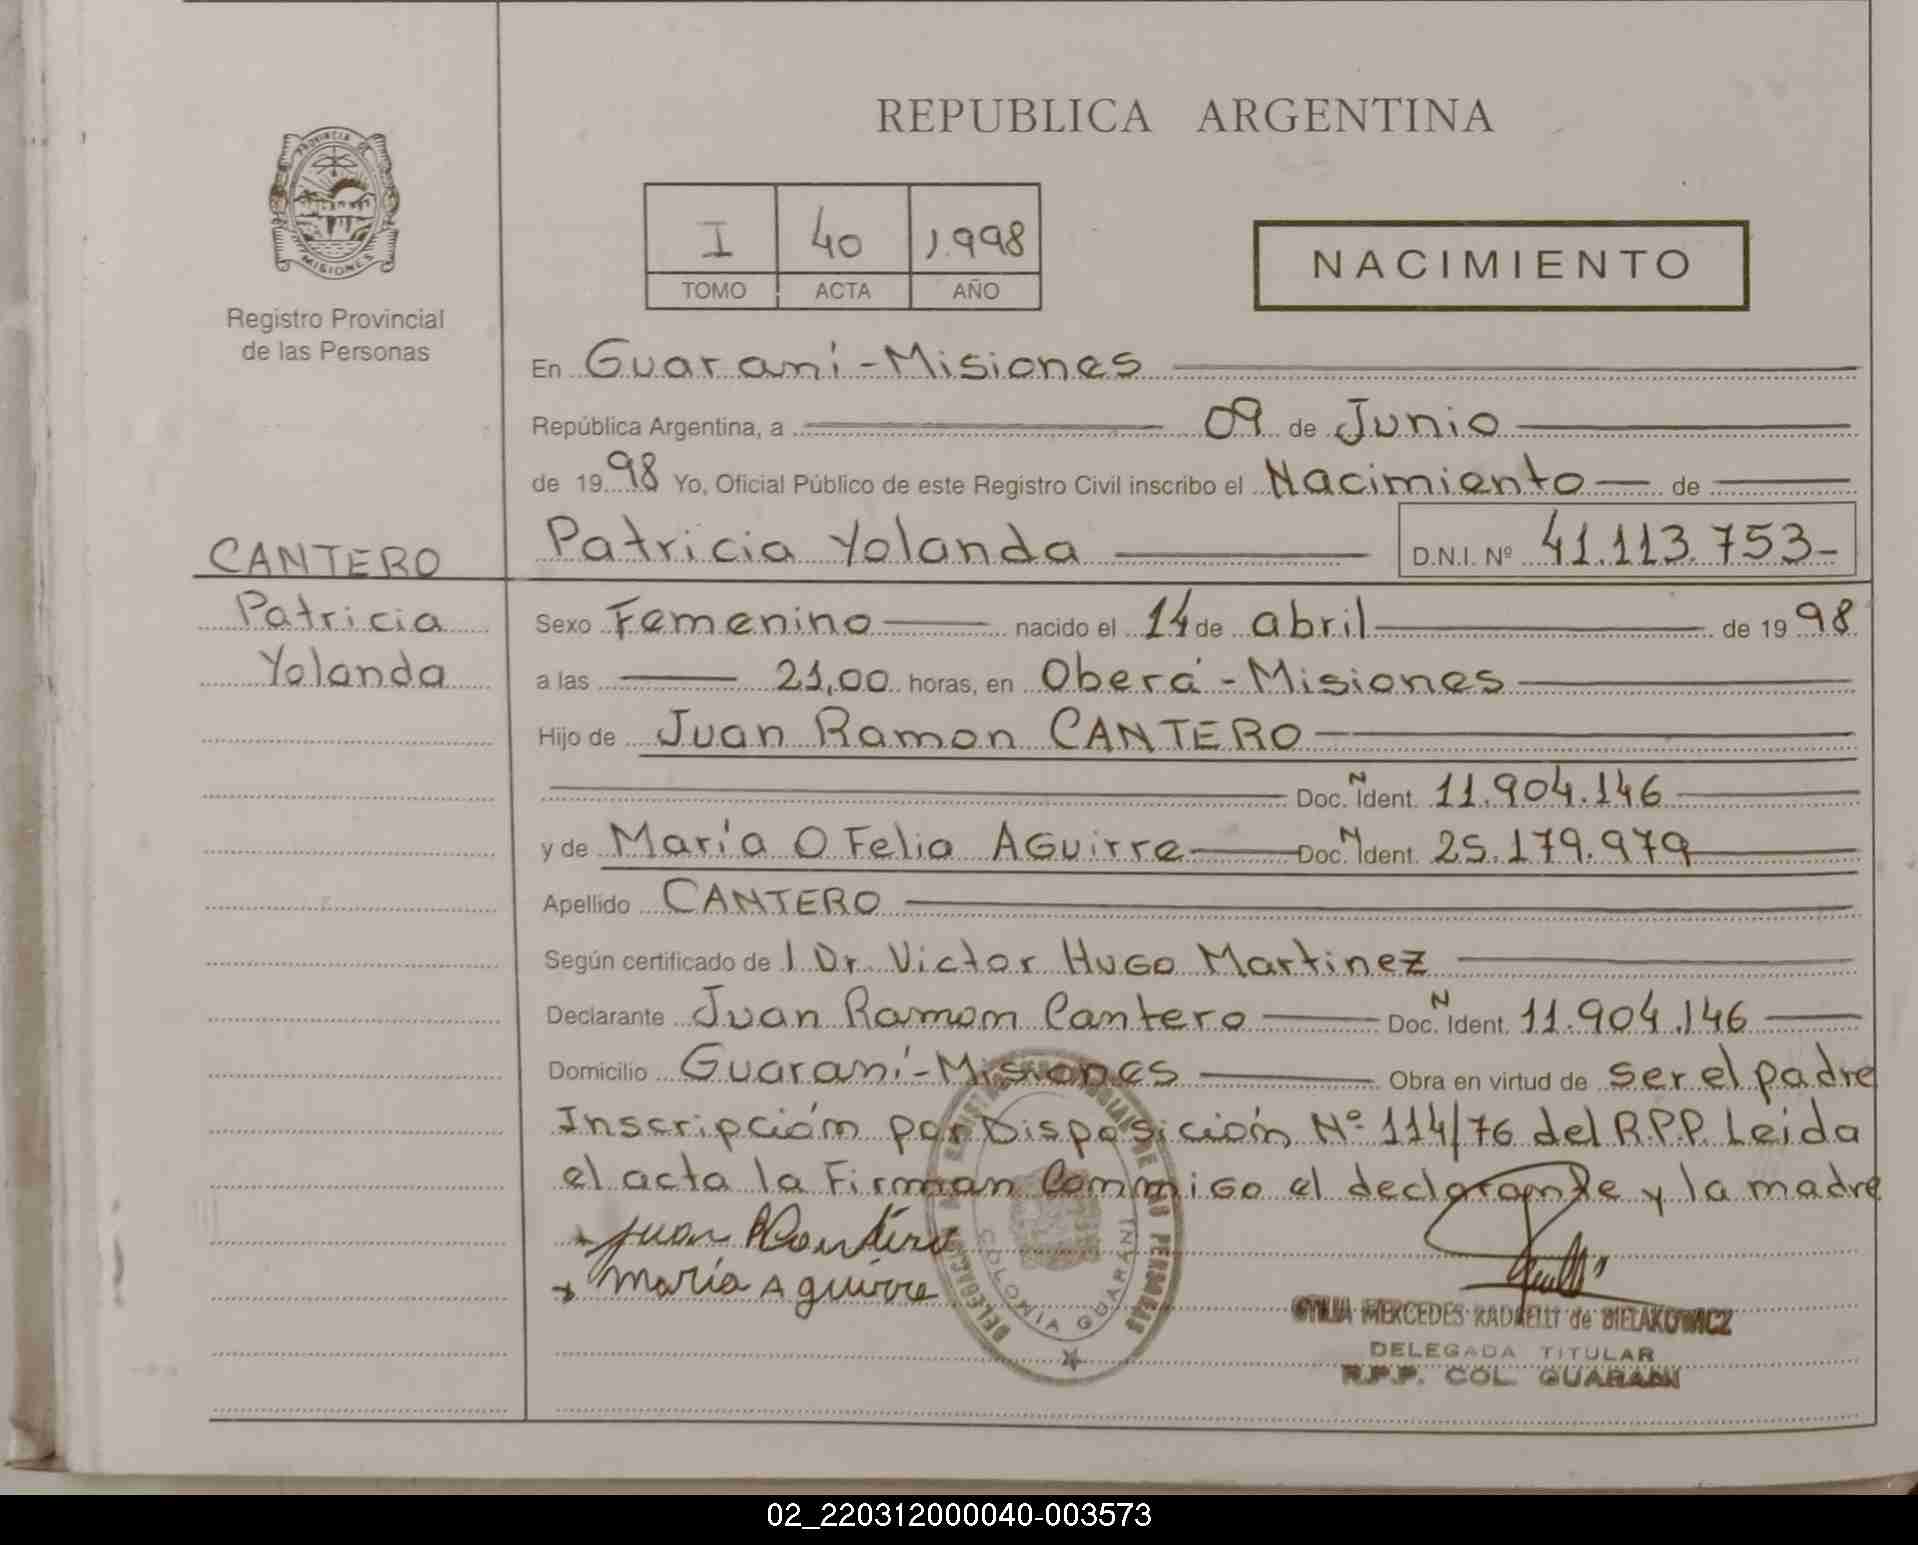 REPUBLICA ARGENTINA
PROVINCIA DE MISIONES
Registro Provincial
de las Personas
I 40 1.998
TOMO ACTA AÑO
NACIMIENTO
En Guaraní-Misiones
República Argentina, a 09 de Junio
de 1998 Yo, Oficial Público de este Registro Civil inscribo el Nacimiento de
Patricia Yolanda D.N.I. Nº 41.113.753-
CANTERO
Patricia
Yolanda
Sexo Femenino nacido el 14 de abril de 1998
a las 21,00 horas, en Oberá-Misiones
Hijo de Juan Ramon CANTERO
Doc. N Ident. 11.904.146
y de María OFelia AGuirre Doc. N Ident. 25.179.979
Apellido CANTERO
Según certificado de l Dr. Victor HuGo Martinez
Declarante Juan Ramon Cantero Doc. N Ident. 11.904.146
Domicilio Guaraní-Misiones Obra en virtud de ser el padre
Inscripción por Disposición Nº 114/76 del R.P.P. Leida
el acta la Firman ConmiGo el declarante y la madre
Juan R Cantero
maría Aguirre
COLONIA GUARANI
MERCEDES RADAELLI de BIELAKOWICZ
DELEGADA TITULAR
R.P.P. COL. GUARANI
02_220312000040-003573